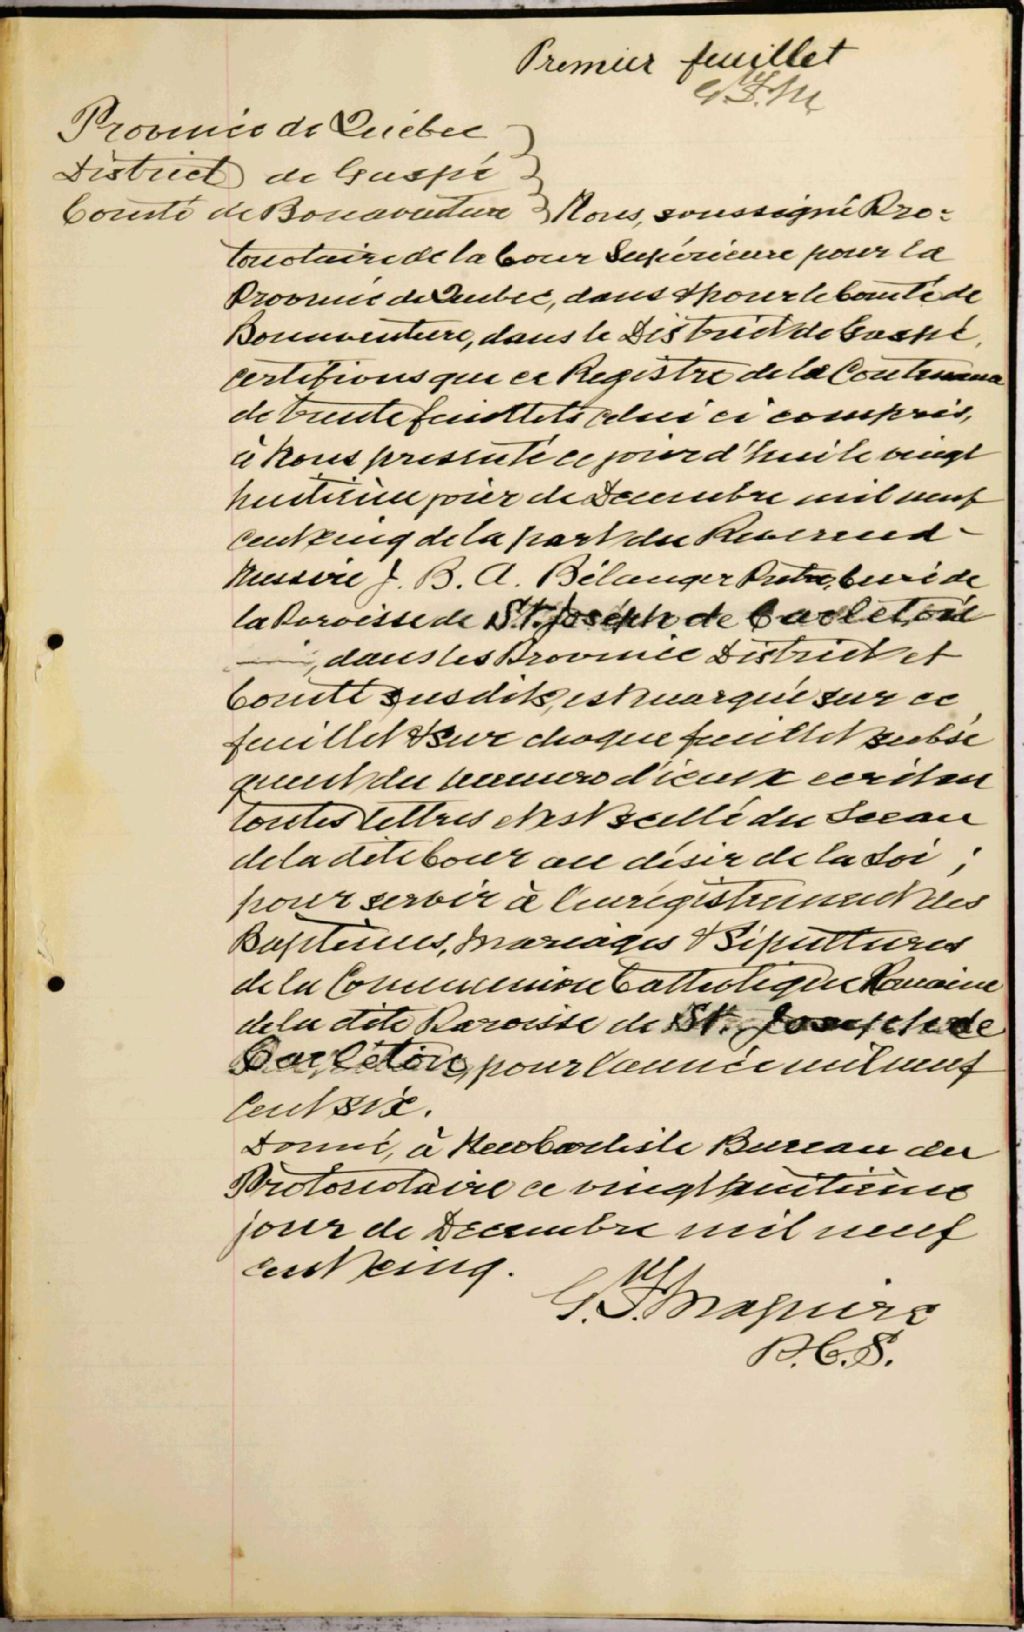 Premier feuillet
G.F.M
Province de Québec
District de Gaspé
Comté de Bonaventure } Nous, soussigné Pro=
tonotaire de la Cour Supérieure pour la
Province de Québec, dans & pour le Comté de
Bonaventure, dans le District de Gaspé,
certifions que ce Registre de la Contenance
de trente feuillets celui ci compris,
à Nous présenté ce jourd'hui le vingt
huitième jour de Decembre mil neuf
cent cinq de la part du Reverend
Messire J. B. A. Bélanger Ptre, Curé de
la Paroisse de St. Joseph de Carleton
, dans les Province District et
Comté susdits, est marqué sur ce
feuillet & sur chaque feuillet subsé
quent du numero d'iceux ecrit en
toutes lettres et est scellé du Sceau
de la dite Cour au désir de la Loi ;
pour servir à l'enrégistrement des
Baptêmes, Mariages & Sépultures
de la Communion Catholique Romaine
de la dite Paroisse de St. Joseph de
Carleton, pour l'année mil neuf
Cent six.
Donné, à New Carlisle Bureau du
Protonotaire ce vingt huitième
jour de Decembre mil neuf
cent cinq.
G. F. Maguire
P.C.S.